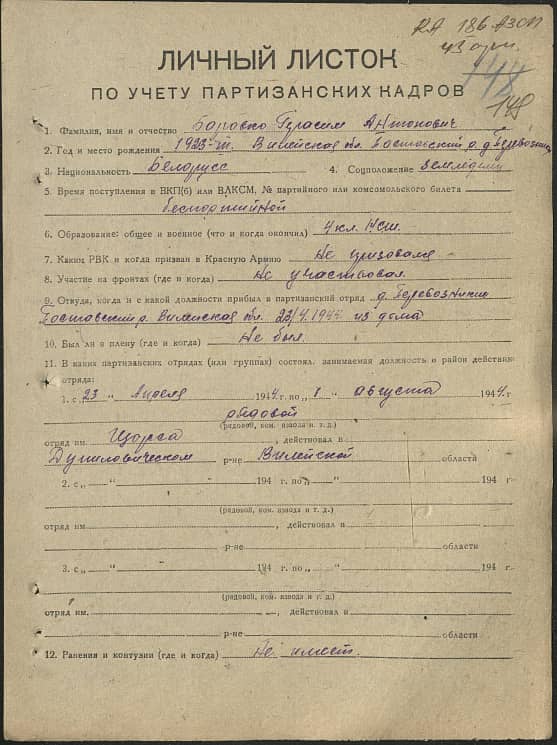 148
149
ЛИЧНЫЙ ЛИСТОК
ПО УЧЕТУ ПАРТИЗАНСКИХ КАДРОВ
1. Фамилия, имя и отчество Боровко Герасим Антонович
2. Год и место рождения 1923 Вилейская обл. Поставский р. д. Перевозники
3. Национальность Белорусс 4. Соцположение земледелец
5. Время поступления в ВКП(б) или ВЛКСМ, № партийного или комсомольского билета
беспартийной
6. Образование: общее и военное (что и когда окончил) 4 кл.
7. Каким РВК и когда призван в Красную Армию Не призовался
8. Участие на фронтах (где и когда) Не участвовал
9. Откуда, когда и с какой должности прибыл в партизанский отряд д. Перевозники
Поставский р. Вилейская обл. 23/4.1944 из дома
10. Был ли в плену (где и когда) Не был.
11. В каких партизанских отрядах (или группах) состоял, занимаемая должность и район действия
отряда:
1. с „23 “ Апреля 1944 г. по „1 “ августа 1944 г.
рядовой
(рядовой, ком. взвода и т. д.)
отряд им. Щорса, действовал в
Дуниловическом р-не Вилейской области
2. с „ “ 194 г. по „ “ 194
(рядовой, ком. взвода и т. д.)
отряд им. , действовал в
р-не области
3. с „ “ 194 г. по „ “ 194 г.
(рядовой, ком. взвода и т. д.)
отряд им. , действовал в
р-не области
12. Ранения и контузии (где и когда) Не имеет.